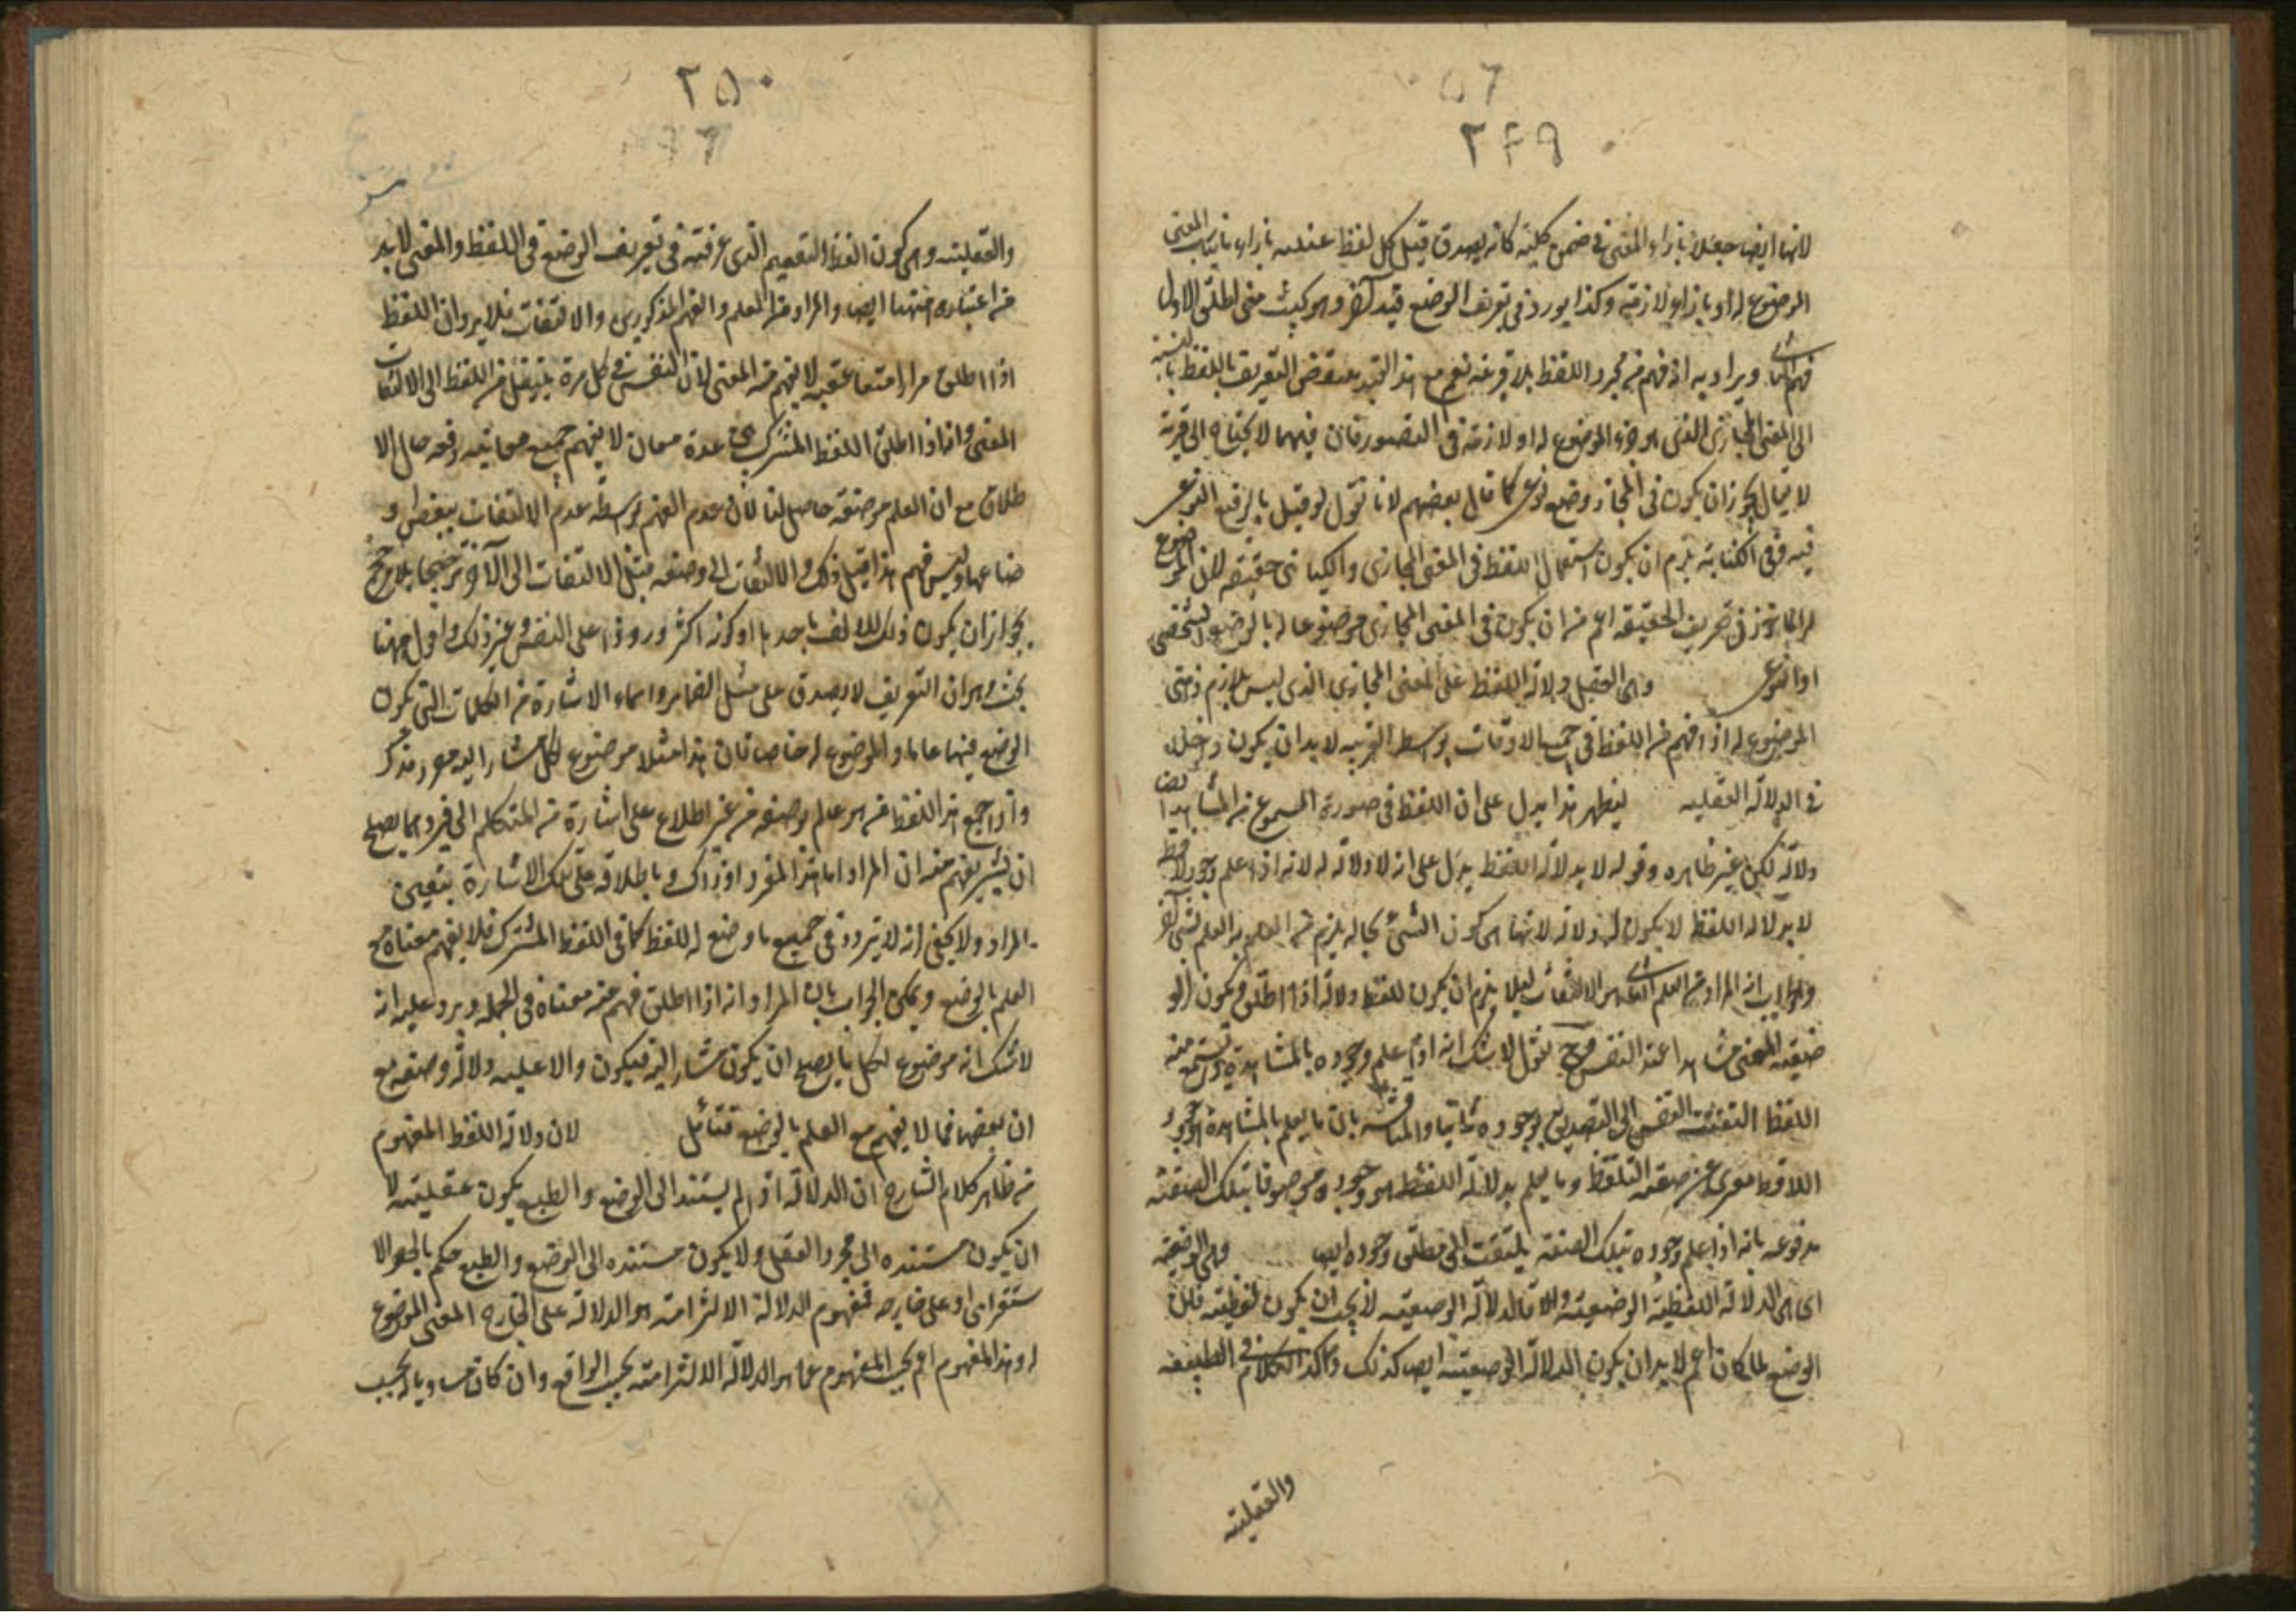 ٢٤٩
لانها ايضا جعلت بازاء المعنى فى ضمن كلية كانه يصدق قيل كل لفظ بازاء ما يناسب المعنى
الموضوع له او بازاء لازمه وكذا يورد فى تعريف الوضع قيد آخر وهو كيث متى اطلق الاول
فهم الثانى ويراد به انه فهم من مجرد اللفظ بلا قرينة نعم مع هذا القيد ينتقض التعريف باللفظ بالنسبة
الى المعنى المجازى الذى هو جزء الموضوع له او لازمه فى التصور فان فيهما لا يحتاج الى قرينة
لا يقال يجوز ان يكون فى المجاز وضع نوعى كما قال بعضهم لانا نقول لو قيل بالوضع النوعى
فيه وفى الكناية يلزم ان يكون استعمال اللفظ فى المعنى المجازى والكنائى حقيقة لان الموضوع
له الماخوذ فى تعريف الحقيقة اعم من ان يكون فى المعنى المجازى موضوعا له بالوضع الشخصى
او النوعى وهى العقل دلالة اللفظ على المعنى المجازى الذى ليس بلازم ذهنى
الموضوع له اذا فهم من اللفظ فى جميع الاوقات بواسطة القرينة لابد ان يكون داخلة
فى الدلالة العقلية ليظهر هذا يدل على ان اللفظ فى صورة المسموع من المشاهد ايضا
دلالة لكن غير ظاهره وقوله لا بدلالة اللفظ يدل على انه لا دلالة له لانه اذا علم وجود لافظ
لا بدلالة اللفظ لا يكون له دلالة لانها هى كون الشئ بحالة يلزم من العلم به العلم بشئ آخر
والجواب ان المراد من العلم الثانى هو الالتفات ليلا يلزم ان يكون للفظ دلالة اذا اطلق ويكون
المعنى مشاهدا عند النفس وح نقول لا شك انه اذا علم وجوده بالمشاهدة ويسمع منه
اللفظ التفتت النفس الى التصديق بوجوده ثانيا والمناقشة بان ما يعلم بالمشاهدة هو وجود
اللافظ معرى عن صفة التلفظ وما يعلم بدلالة اللفظ هو وجوده موصوفا بتلك الصفة
مدفوعه بانه اذا علم وجوده بتلك الصفة يلتفت الى مطلق وجوده ايضا وهى الوضعية
اى هى الدلالة اللفظية الوضعية والا فالدلالة الوضعية لا يجب ان يكون لفظية فان
الوضع لما كان اعم لابد ان يكون الدلالة الوضعية ايضا كذلك وهكذا الكلام فى الطبيعية
والعقلية
٢٥٠
والعقلية وهى كون اللفظ التعميم الذى عرفته فى تعريف الوضع فى اللفظ والمعنى لابد
من اعتباره ههنا ايضا والمراد من العلم والفهم المذكورين والالتفات فلا يرد ان اللفظ
اذا اطلق مرارا متعاقبة لا يفهم منه المعنى لان النفس فى كل مرة ينتقل من اللفظ الى الالتفات
المعنى وانه اذا اطلق اللفظ المشترك بين عدة معان لا يفهم جميع معانيه دفعه حال الا
طلاق مع ان العلم بوضعه حاصل لنا لان عدم الفهم بواسطة عدم الالتفات ببعض او
ضاعها وليس فهم هذا قبل ذلك والالتفات الى وضعه قبل الالتفات الى الآخر ترجيحا بلا مرجح
بجواز ان يكون ذلك للالف باحدها او كونه اكثر ورودا على النفس وغير ذلك واقول ههنا
بحث وهو ان التعريف لا يصدق على مثل الضمائر واسماء الاشارة من الكلمات التى يكون
الوضع فيها عاما والموضوع له خاصا فان هذا مثلا موضوع لكل مشار اليه مفرد مذكر
واذا سمع هذا اللفظ من هو عالم بوضعه من غير اطلاع على اشارة من المتكلم الى فرد مما يصلح
ان يشير يفهم منه ان المراد اما هذا المفرد او ذاك وباطلاقه على تلك الاشارة يتعين
المراد ولا يخفى انه لا يتردد فى جميع ما وضع له اللفظ كما فى اللفظ المشترك فلا يفهم معناه مع
العلم بالوضع ويمكن الجواب بان المراد انه اذا اطلق فهم منه معناه فى الجمله ويرد عليه انه
لا شك انه موضوع لكل ما يصلح ان يكون مشارا اليه فيكون دالا عليه دلالة وضعه مع
ان بعضها مما لا يفهم مع العلم بالوضع فتامل لان دلالة اللفظ المفهوم
من ظاهر كلام الشارح ان الدلالة اذا لم يستند الى الوضع والطبع يكون عقلية لا
ان يكون مستنده الى مجرد العقل ولا يكون مستنده الى الوضع والطبع حكم بالحصر الا
ستقرائى او على خارجه فمفهوم الدلالة الالتزامية هو الدلالة على الخارج المعنى الموضوع
له وهذا المفهوم اعم بحسب المفهوم عما هو الدلالة الالتزامية بحسب الواقع وان كان مساويا له بحسب